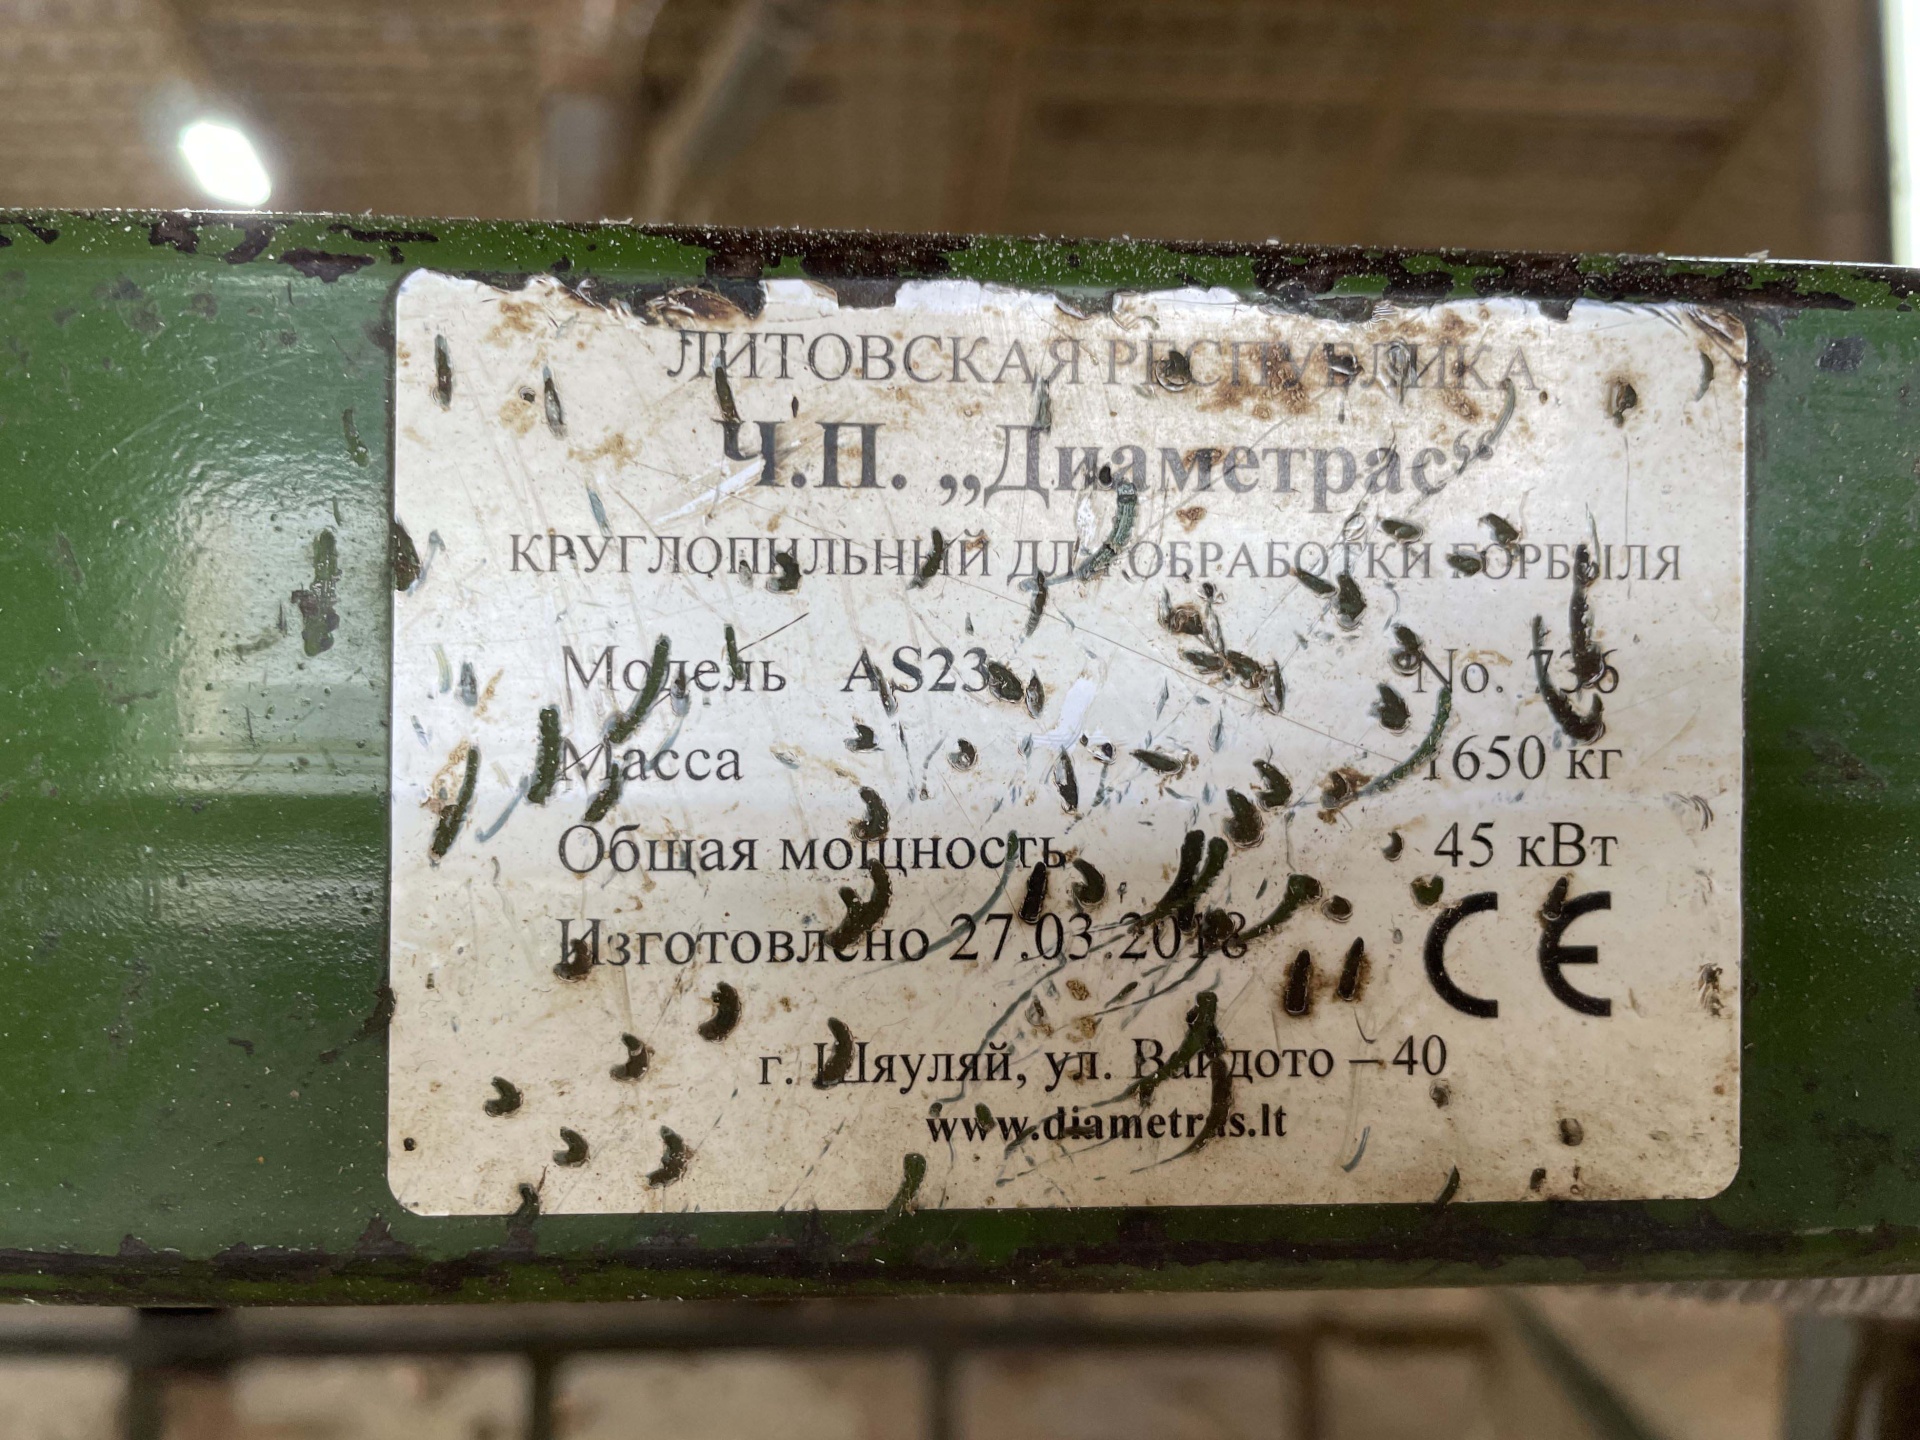 ЛИТОВСКАЯ РЕСПУБЛИКА
Ч.П. „Диаметрас“
КРУГЛОПИЛЬНЫЙ ДЛЯ ОБРАБОТКИ ГОРБЫЛЯ
Модель AS23 No. 736
Масса 1650 кг
Общая мощность 45 кВт
Изготовлено 27.03.2018
CE
г. Шяуляй, ул. Вайдото – 40
www.diametras.lt